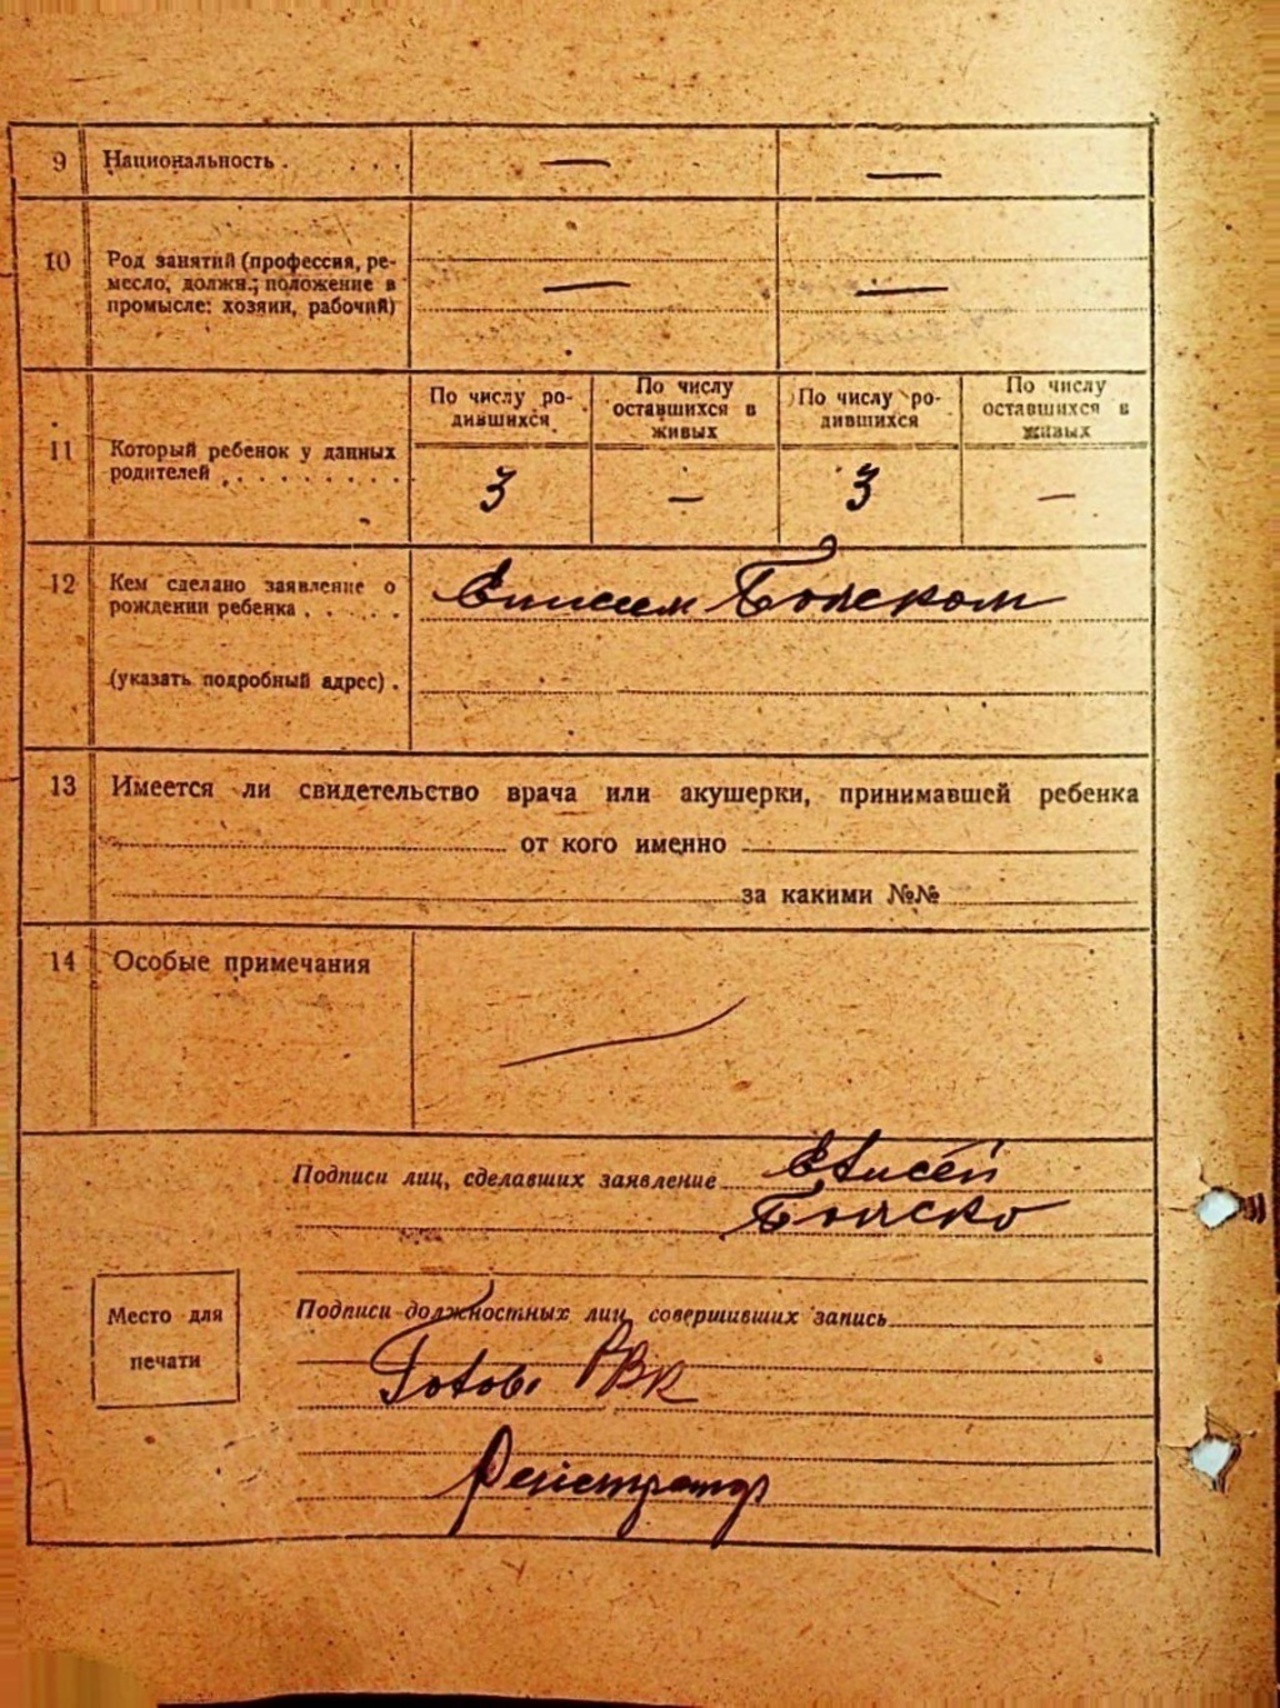 9 Национальность . . . . — —
10 Род занятий (профессия, ре-
месло, должн.; положение в — —
промысле: хозяин, рабочий)
По числу ро- По числу По числу ро- По числу
дившихся оставшихся в дившихся оставшихся в
живых живых
11 Который ребенок у данных
родителей . . . . . . . . . 3 — 3 —
12 Кем сделано заявление о
рождении ребенка . . . . .
(указать подробный адрес) .
13 Имеется ли свидетельство врача или акушерки, принимавшей ребенка
от кого именно
за какими №№
14 Особые примечания
Подписи лиц, сделавших заявление Елисей
Место для
печати
Подписи должностных лиц, совершивших запись
РВК
Регистратор